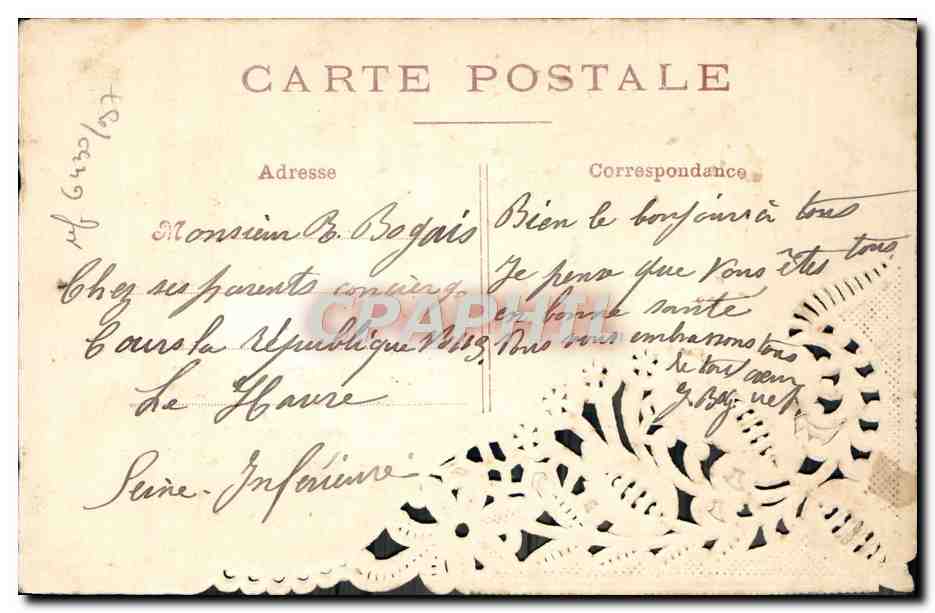 CARTE POSTALE
ref 6430/87
Adresse
Monsieur R. Bogais
Chez ses parents concierge
Cours la république
Le Havre
Seine-Inférieure
Correspondance
Bien le bonjour à tous
Je pense que vous êtes tous
en bonne santé
vous embrassons tous
de tout cœur
CPAPHIL